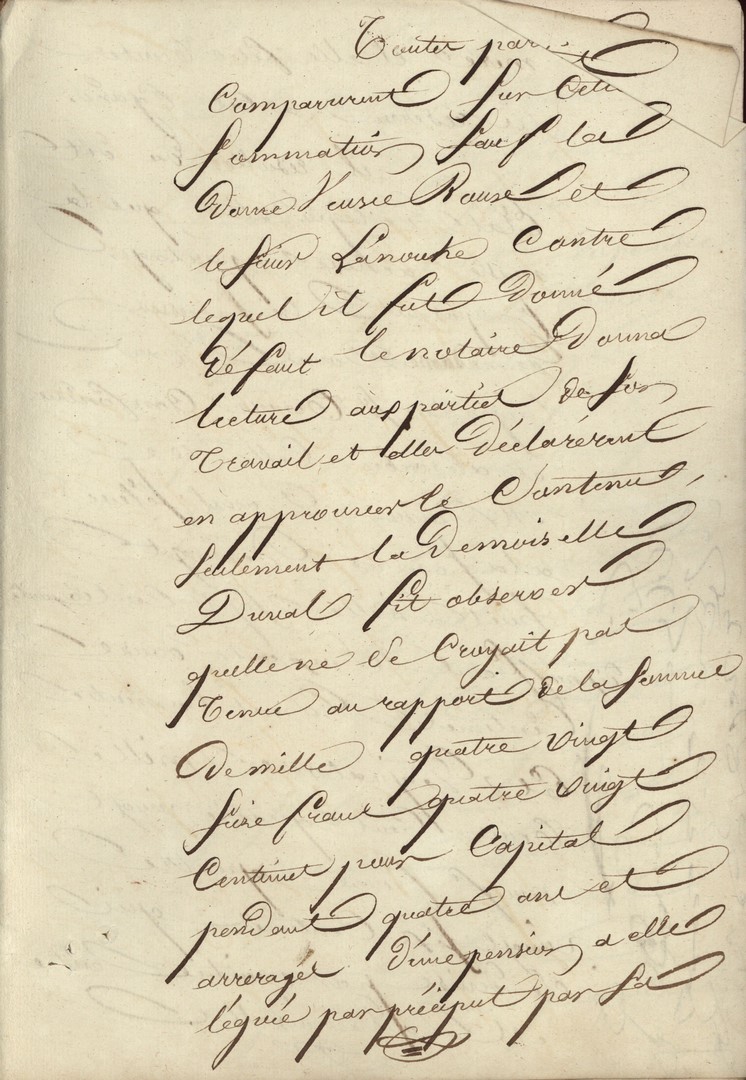 Toutes par
Comparurent sur Cette
Sommation sauf la
Dame Veuve Rouse et
le sieur Lanouhe Contre
lequel il fut Donné
défaut le notaire Donna
lecture aux parties de son
Travail et elles Déclarèrent
en approuver le Contenu,
seulement la Demoiselle
Duval fit observer
qu'elle ne se Croyait pas
Tenue au rapport de la somme
De mille quatre vingt
seize francs quatre vingt
Centimes pour Capital
pendant quatre ans et
arrerages d'une pension a elle
léguée par préciput par sa